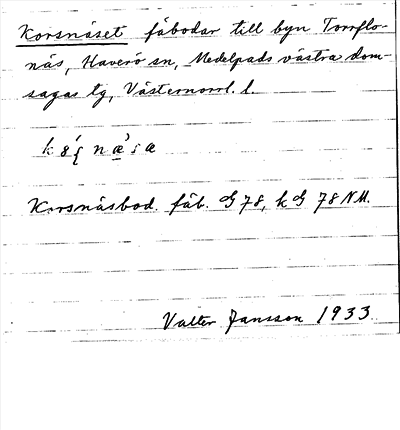 Korsnäset fäbodar till byn Torrflo-
näs, Haverö sn, Medelpads västra dom-
sagas tg, Västernorrl. l.
Korsnäsbod. fäb. G 78, k G 78 NU.
Valter Jansson 1933